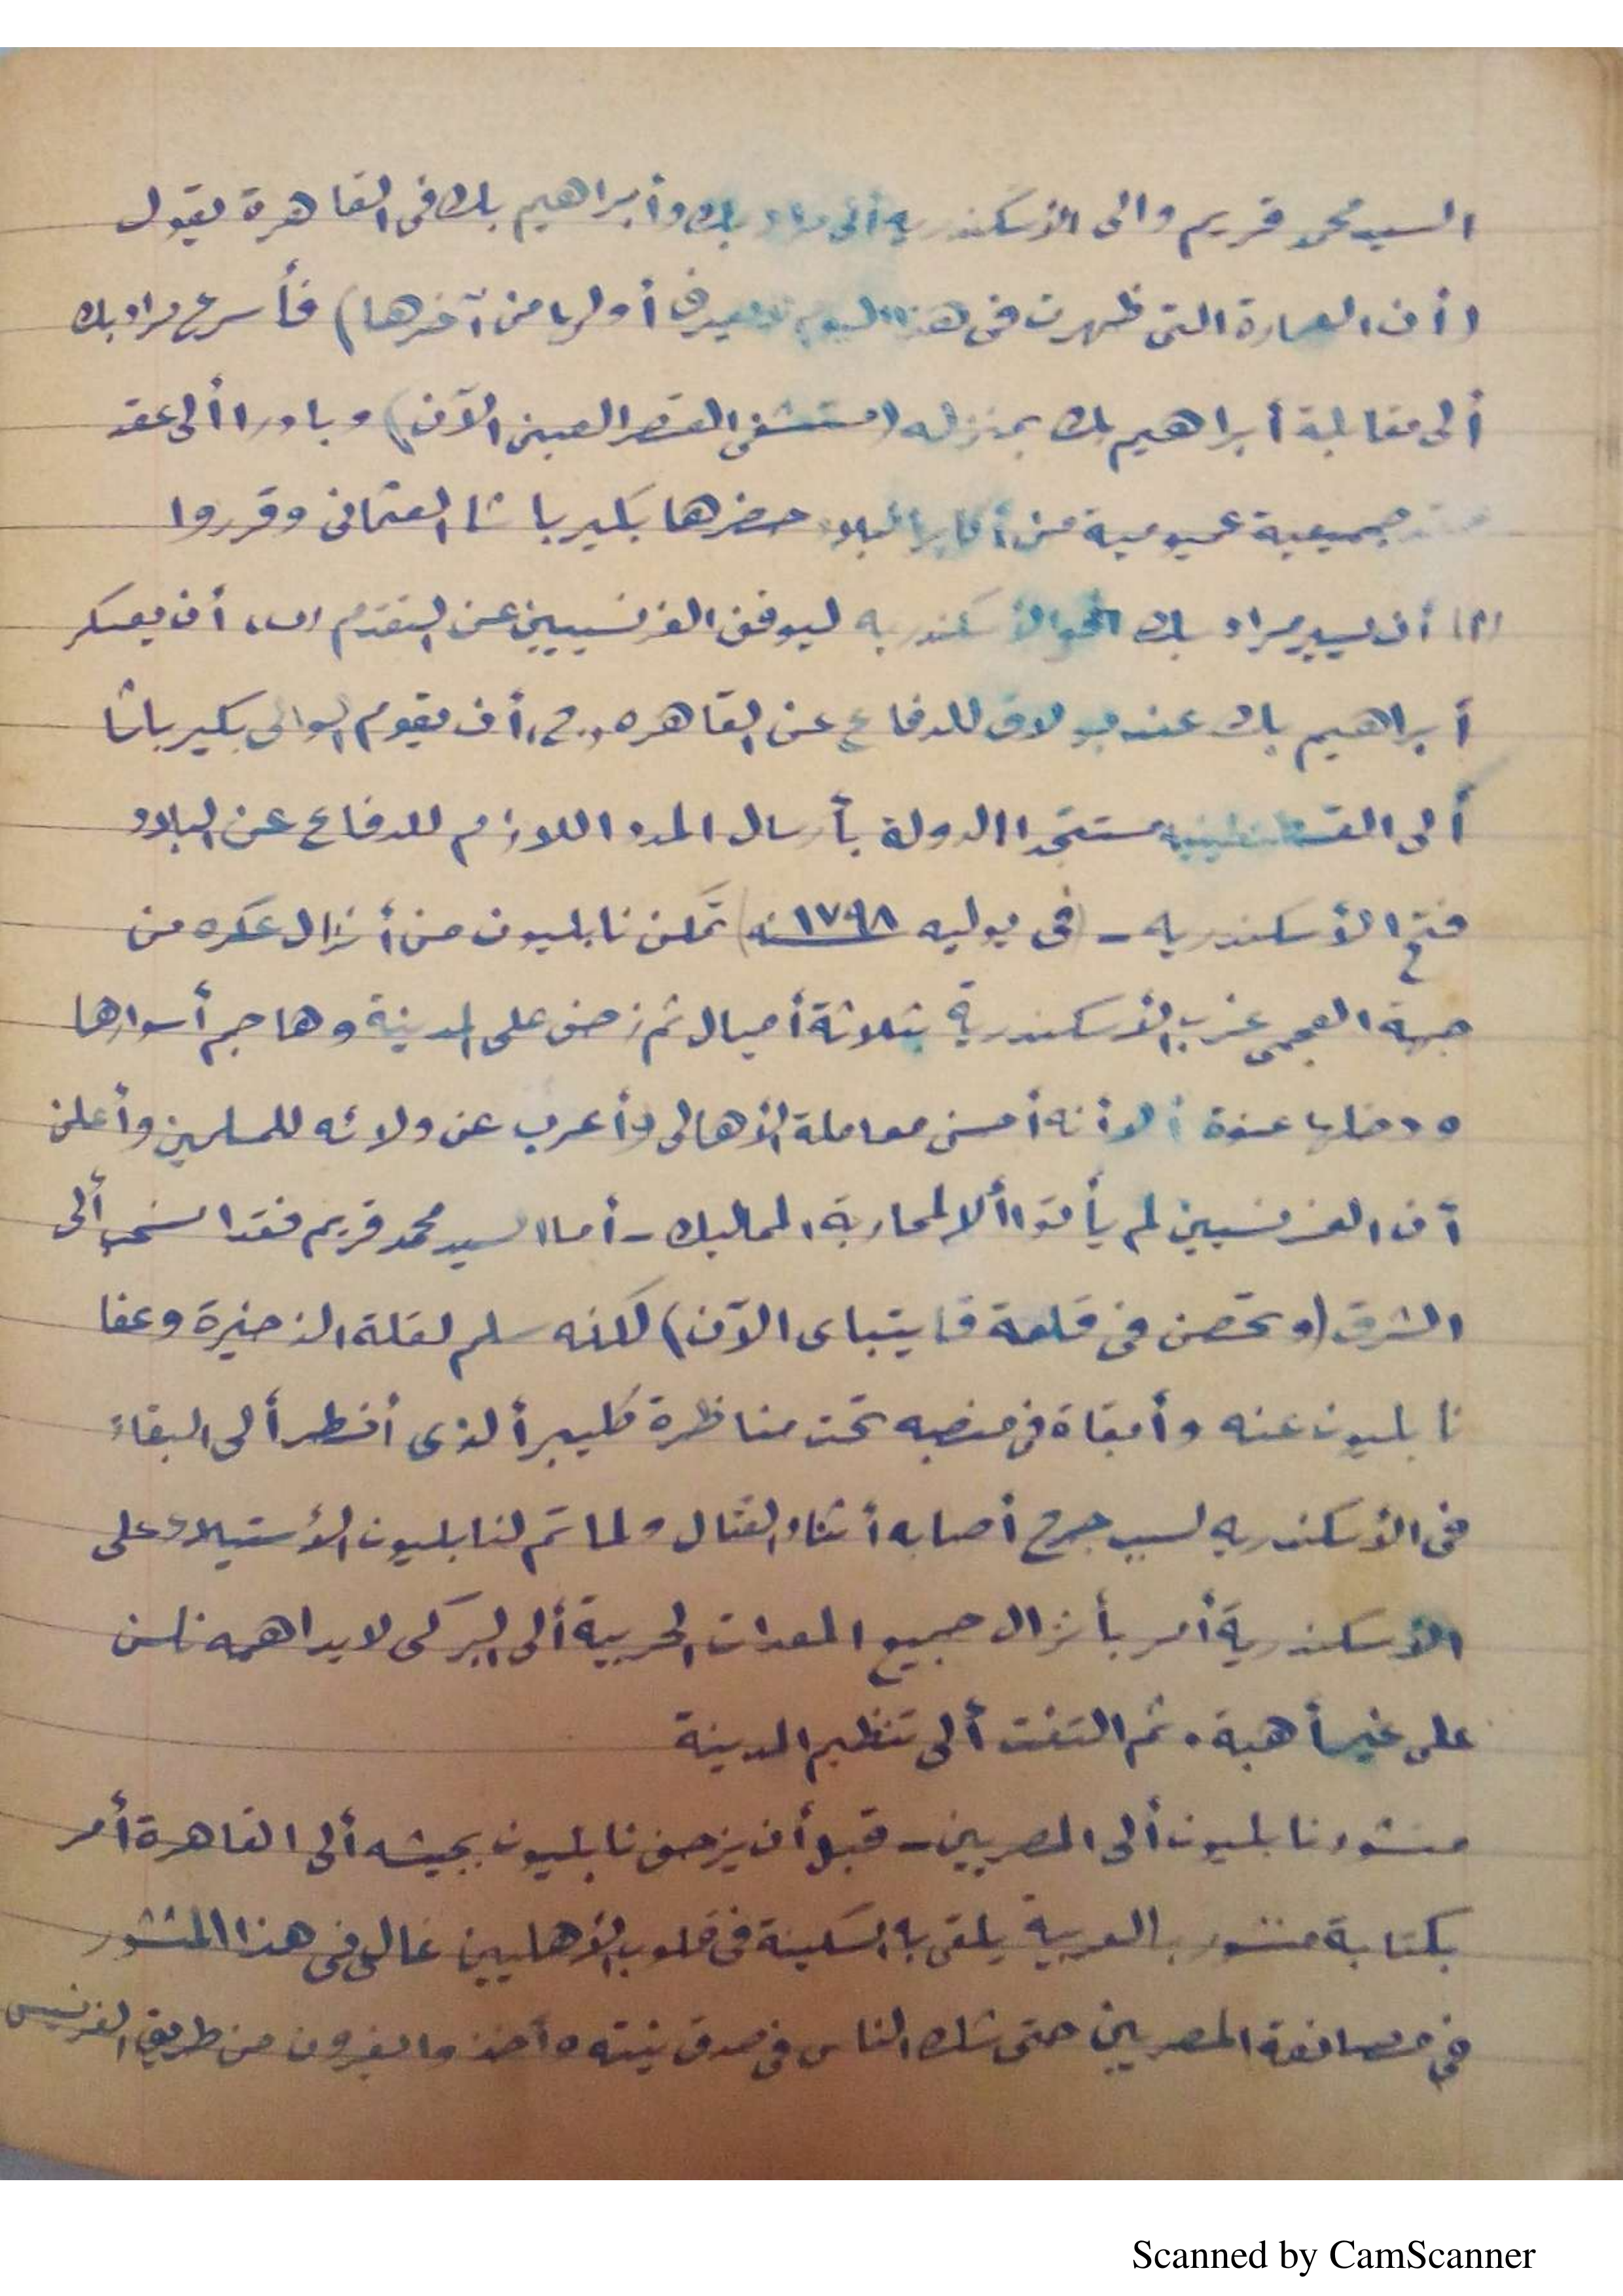 السيد محمد قريم والى الأسكندريه ألى مراد بك وأبراهيم بك فى القاهرة يقول
(أن العمارة التى ظهرت فى هذا اليوم أولها من آخرها) فأسرع مراد بك
ألى مقابلة أبراهيم بك بمنزله (مستشفى القصر العينى الآن) وبادرا ألى عقد
جميعية عمومية من أكابر البلاد حضرها بكير باشا العثمانى وقرروا
(١) أن يسير مراد بك نحو الأسكندريه ليوقف الفرنسيين عن التقدم (ب) أن يعسكر
أبراهيم بك عند بولاق للدفاع عن القاهره (ج) أن يقوم الوالى بكير باشا
ألى القسطنطينيه مستنجدا الدولة بأرسال المدد اللازم للدفاع عن البلاد
فتح الأسكندريه - (فى يوليه ١٧٩٨ سنة) تمكن نابليون من أنزال عسكره من
جهة العجمى غرب الأسكندرية بثلاثة أميال ثم زحف على المدينة وهاجم أسوارها
ودخلها عنوة ألا أنه أحسن معاملة الأهالى وأعرب عن ولائه للمسلمين وأعلن
أن الفرنسيين لم يأتوا ألا لمحاربة المماليك - أما السيد محمد قريم فقد انسحب ألى
الشرق (وتحصن فى قلعة قايتباى الآن) لكنه سلم لقلة الذخيرة وعفا
نابليون عنه وأبقاة فى منصبه تحت مناظرة كليبر ألذى أضطر ألى البقاء
فى الأسكندريه لسبب جرح أصابه أثناء القتال ولما تم لنابليون الأستيلاء على
الأسكندرية أمر بأنزال جميع المعدات الحربية ألى البر كى لا يداهمه نلسن
على غير أهبة. ثم التفت ألى تنظيم المدينة
منشور نابليون ألى المصريين - قبل أن يزحف نابليون بجيشه ألى القاهرة أمر
بكتابة منشور بالعربية يلقى به السكينة فى قلوب الأهليين غالى فى هذا المنشور
فى مصانعة المصريين حتى شك الناس فى صدق نيته وأخذوا يفرون من طريق الفرنسيس
Scanned by CamScanner